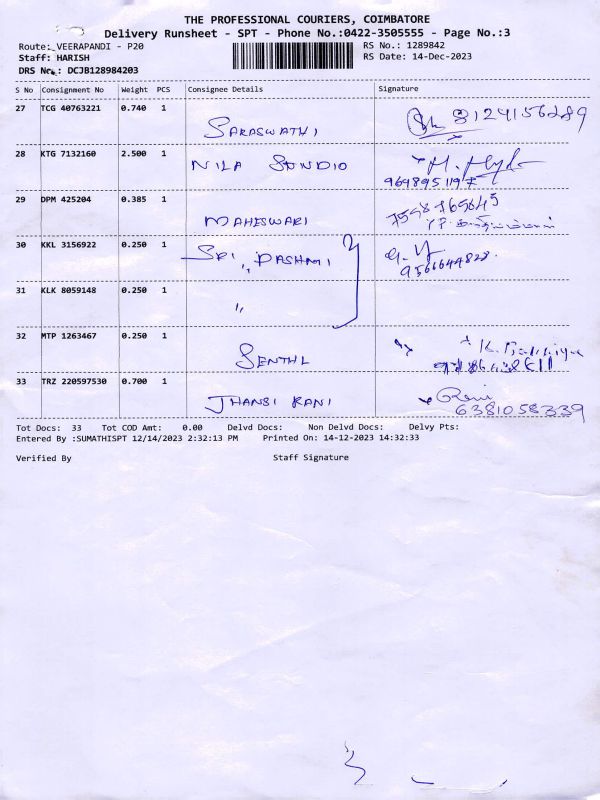 THE PROFESSIONAL COURIERS, COIMBATORE
Delivery Runsheet - SPT - Phone No.:0422-3505555 - Page No.:3
Route: VEERAPANDI - P20 RS No.: 1289842
Staff: HARISH RS Date: 14-Dec-2023
DRS No.: DCJB128984203
S No Consignment No Weight PCS Consignee Details Signature
27 TCG 40763221 0.740 1 SARASWATHI 8124156289
28 KTG 7132160 2.500 1 NILA
9698951197
29 DPM 425204 0.385 1 MAHESWARI
30 KKL 3156922 0.250 1 SRI DASHMI
31 KLK 8059148 0.250 1 "
32 MTP 1263467 0.250 1 SENTHL
33 TRZ 220597530 0.700 1 JHANSI RANI Rani
6381058339
Tot Docs: 33 Tot COD Amt: 0.00 Delvd Docs: Non Delvd Docs: Delvy Pts:
Entered By :SUMATHISPT 12/14/2023 2:32:13 PM Printed On: 14-12-2023 14:32:33
Verified By Staff Signature